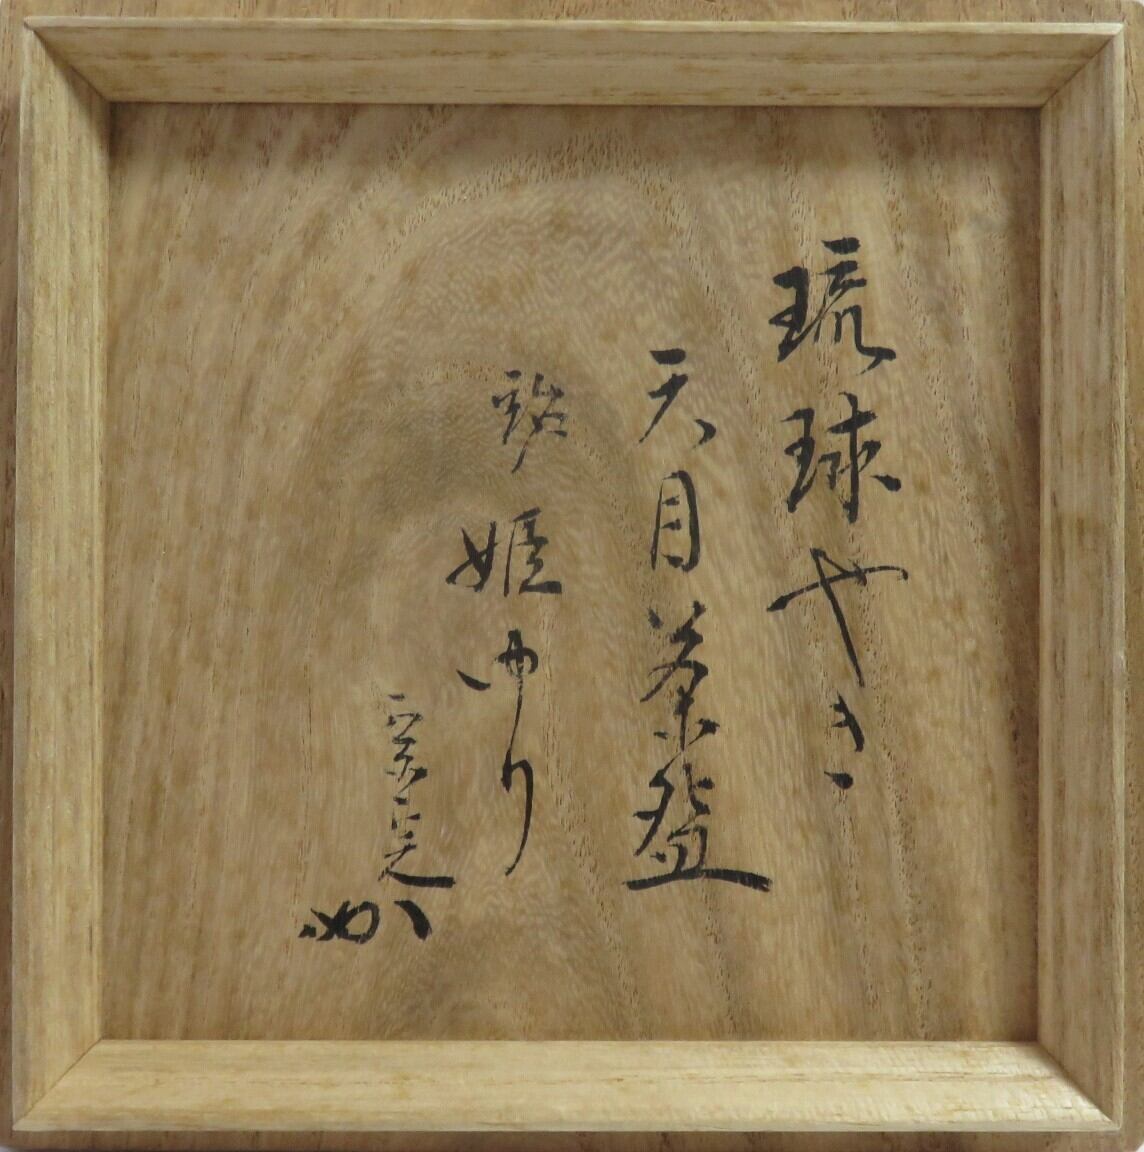 琉球やき
天目茶盌
銘
姫ゆり
宗